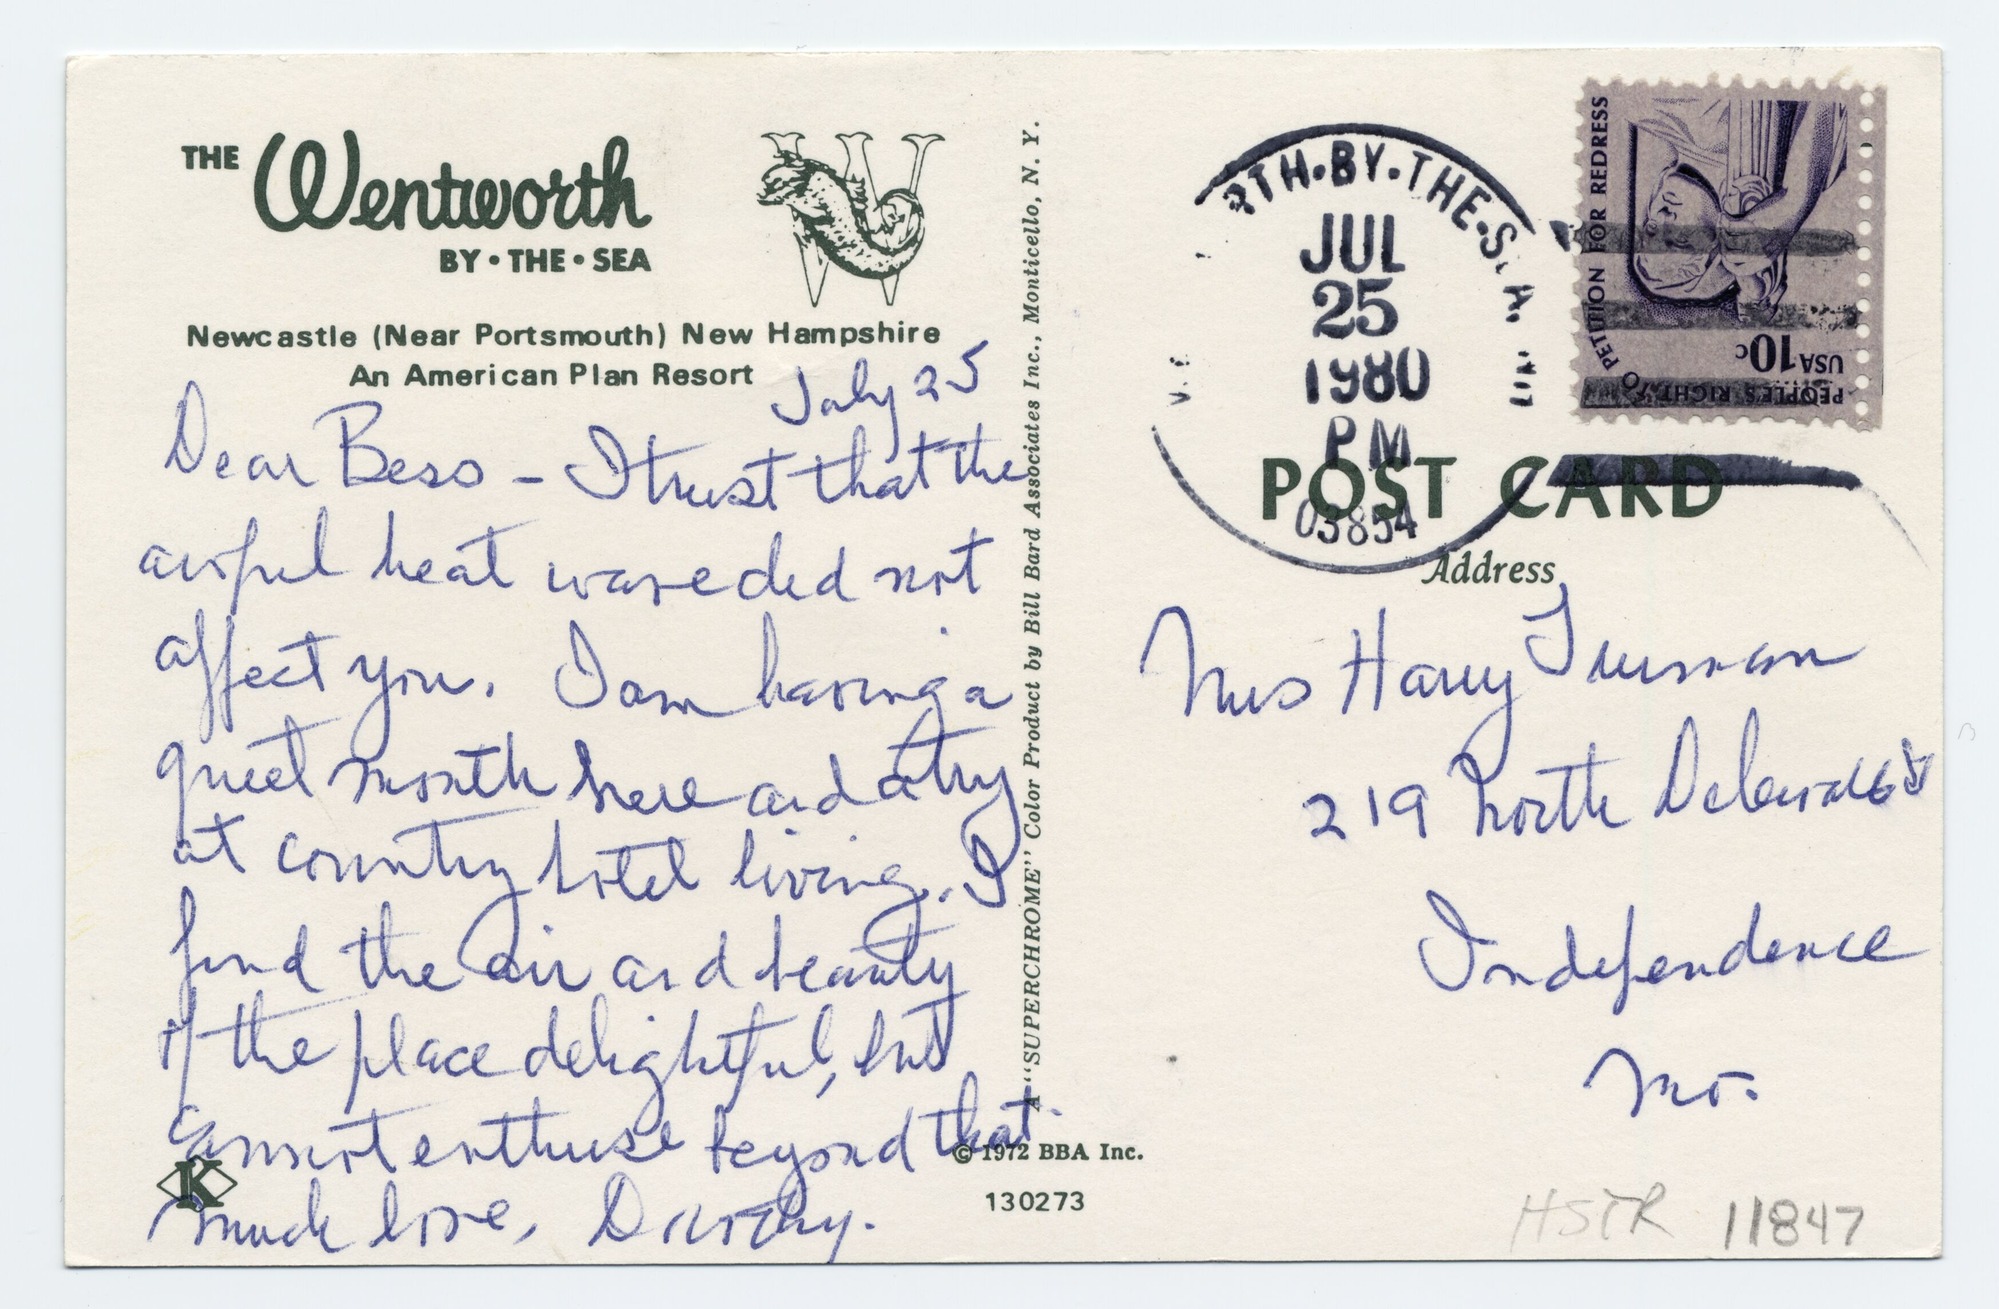 THE Wentworth
BY • THE • SEA
Newcastle (Near Portsmouth) New Hampshire
An American Plan Resort
July 25
Dear Bess – I trust that the
awful heat wave did not
affect you. I am having a
quiet month here and a try
at country hotel living. I
find the air and beauty
of the place delightful, but
cannot enthuse beyond that.
much love, Dorothy.
K
A "SUPERCHROME" Color Product by Bill Bard Associates Inc., Monticello, N. Y.
© 1972 BBA Inc.
130273
RTH·BY·THE·S A.
JUL
25
1980
PM
03854
PEOPLE'S RIGHT TO PETITION FOR REDRESS
USA 10c
POST CARD
Address
Mrs Harry Truman
219 North Delaware St
Independence
Mo.
HSTR 11847